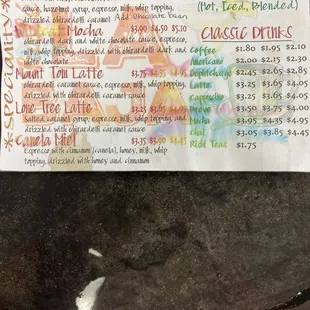 *speciality*
sauce, hazelnut syrup, espresso, milk, whip topping,
drizzled ghirardelli caramel Add Chocolate bacon
Mocha $3.90 4.50 $5.10
ghirardelli dark and white chocolate sauce, espresso,
milk, whip topping, drizzled with ghirardelli dark and
white chocolate
Mount Tom Latte $3.75
ghirardelli caramel, espresso, milk, whip topping, and
drizzled with ghirardelli caramel sauce
Lone Tree Latte
Salted caramel syrup, espresso, milk, whip topping, and
drizzled with ghirardelli caramel sauce
Canela Miel $3.35 $3.90 $4.45
Espresso with cinnamon (canela), honey, milk, whip
topping, drizzled with honey and cinnamon
(Hot, Iced, Blended)
Classic Drinks
Coffee $1.80 $1.95 $2.10
Americano $2.00 $2.15 $2.30
Depthcharge $2.45 $2.65 $2.85
Latte $3.25 $3.65 $4.05
Cappuccino $3.25 $3.65 $4.05
Breve $3.50 $3.75 $4.00
Mocha $3.95 $4.35 $4.95
Chai $3.05 $3.85 $4.45
Rishi Teas $1.75